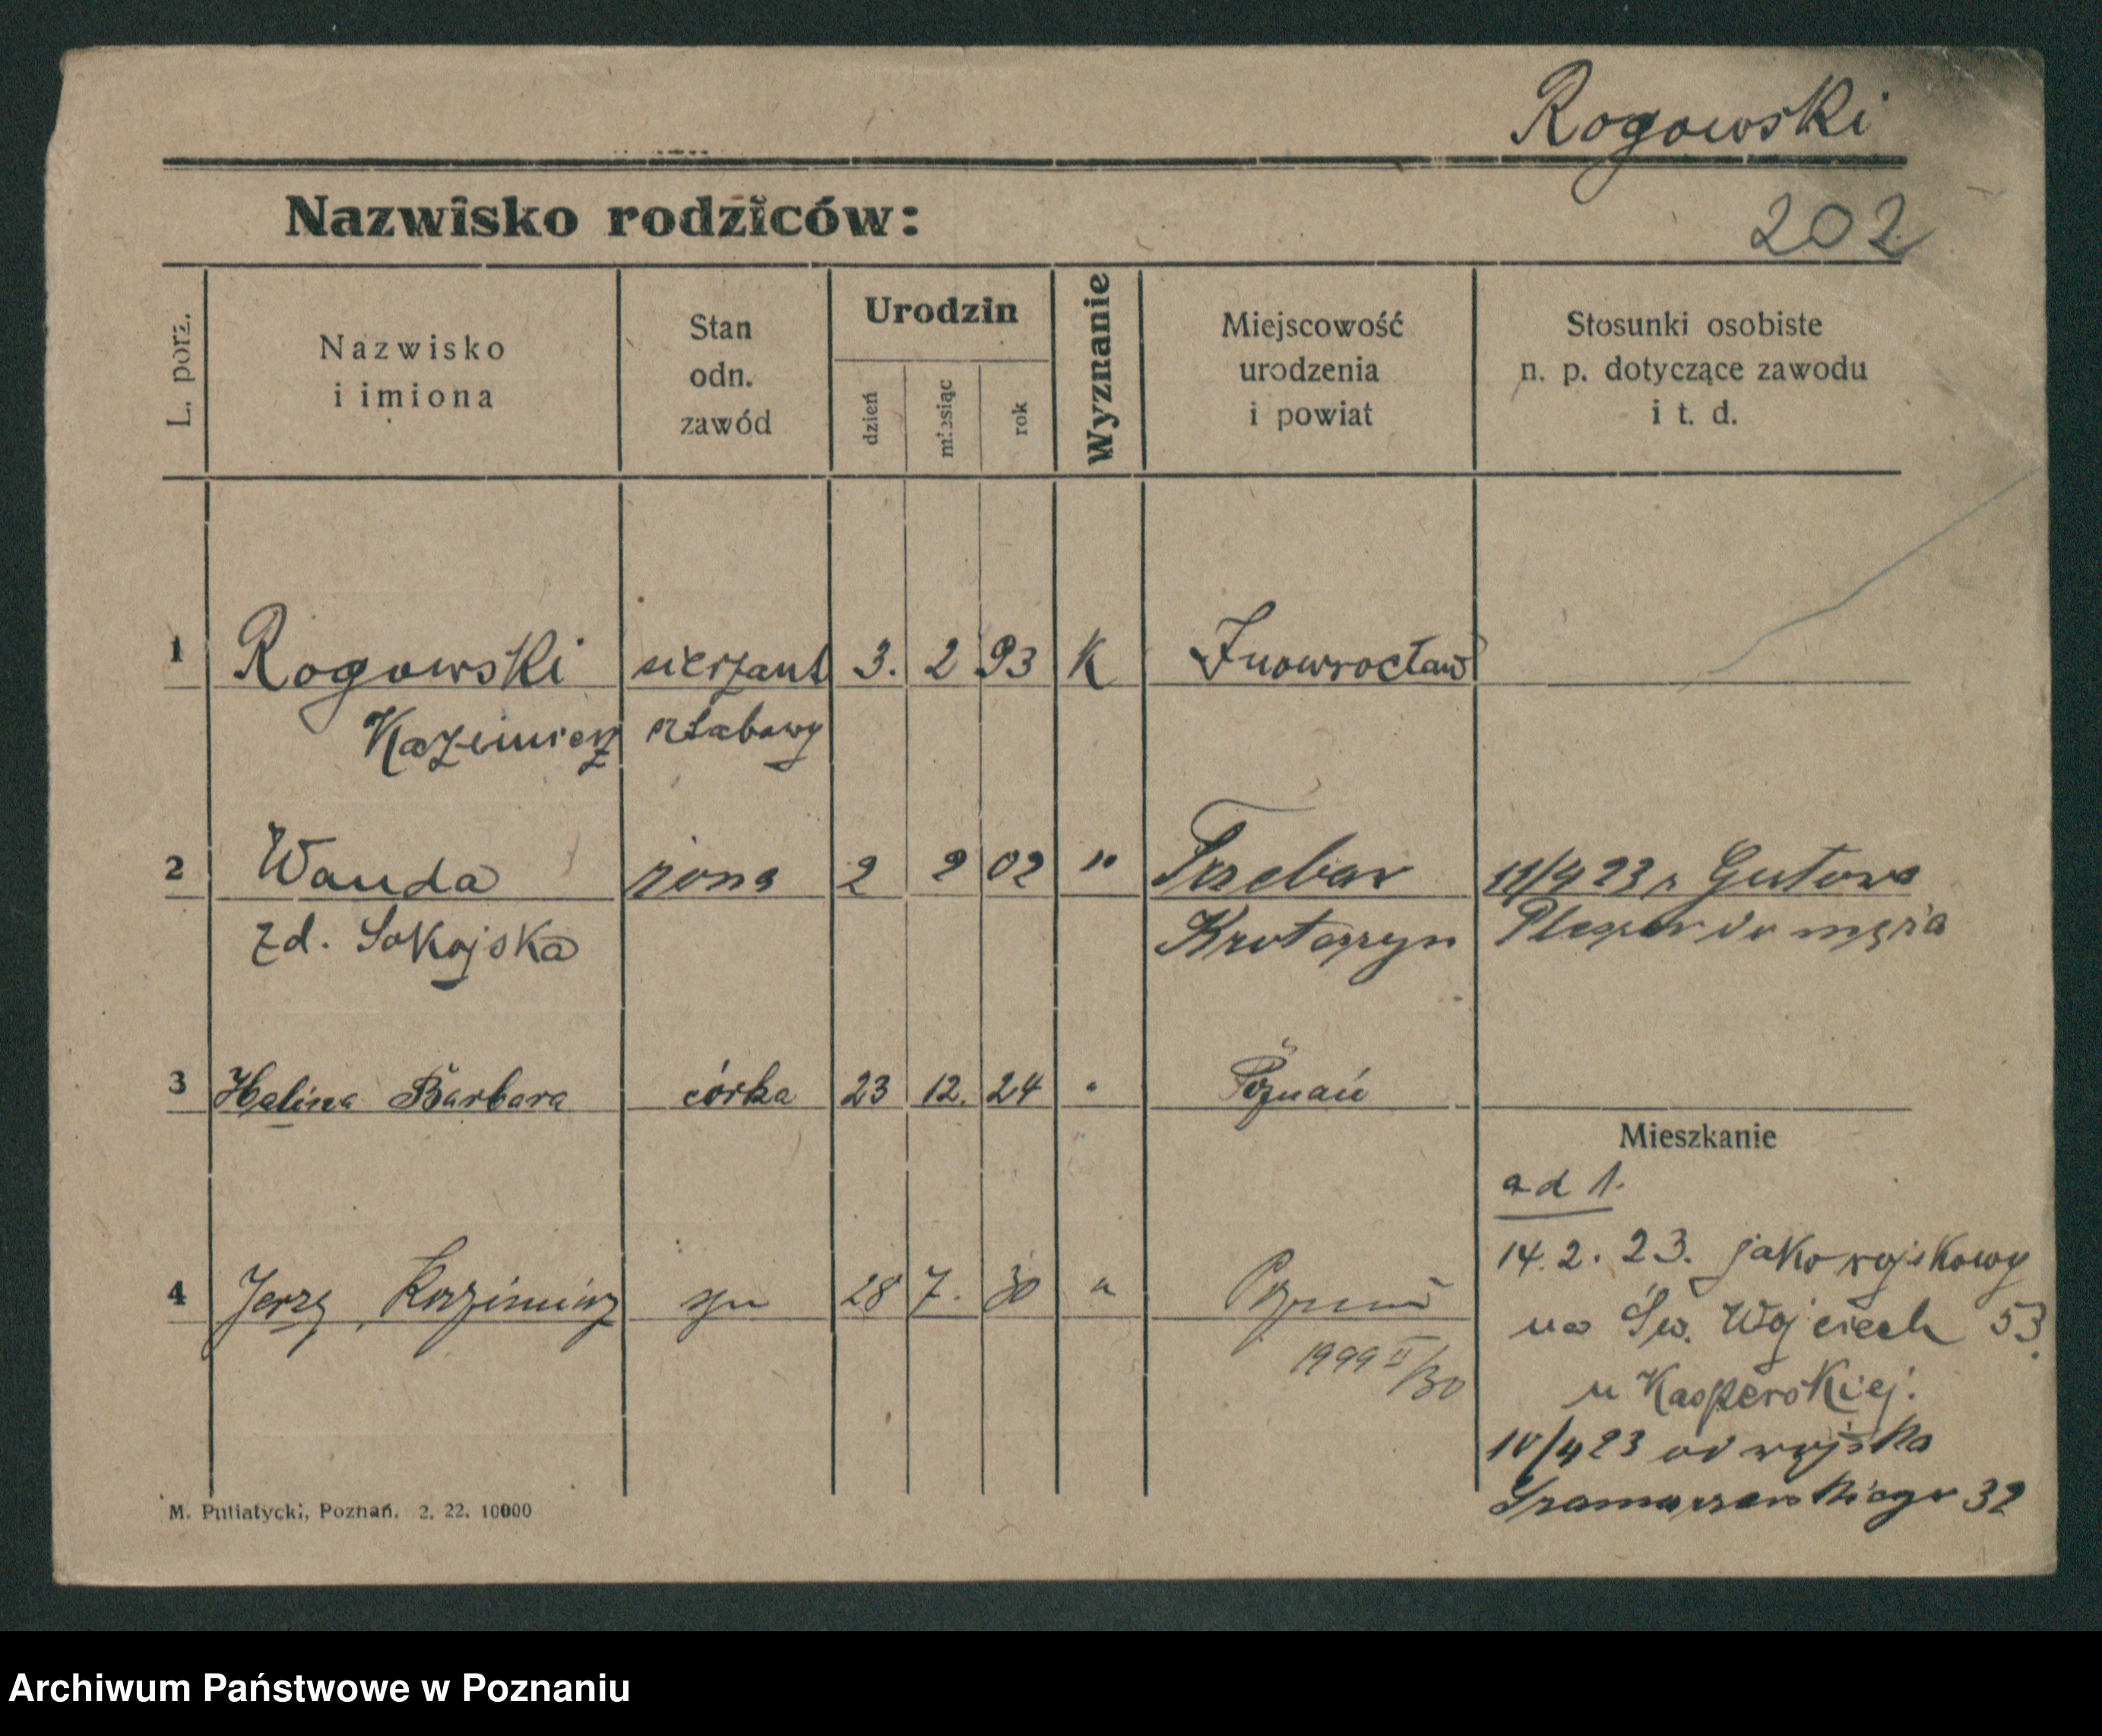 Rogowski
Nazwisko rodziców:
202
L. porz.
Nazwisko
i imiona
Stan
odn.
zawód
Urodzin
dzień
miesiąc
rok
Wyznanie
Miejscowość
urodzenia
i powiat
Stosunki osobiste
n. p. dotyczące zawodu
i t. d.
1 Rogowski sierżant 3. 2 93 K Inowrocław
Kazimierz sztabowy
2 Wanda żona 2 2 02 " 23 r Gutowa
zd. Sokojska Krotoszyn do męża
3 Halina Barbara córka 23 12. 24 " Poznań
Mieszkanie
ad 1.
14. 2. 23. jako wojskowy
4 Jerzy Kazimierz syn 28 7. 30 " Poznań
na Św. Wojciech 53.
1999 II/30
u Kasperskiej.
10/4 23 od wojska
Szamarzewskiego 32
M. Putiatycki, Poznań. 2. 22. 10000
Archiwum Państwowe w Poznaniu